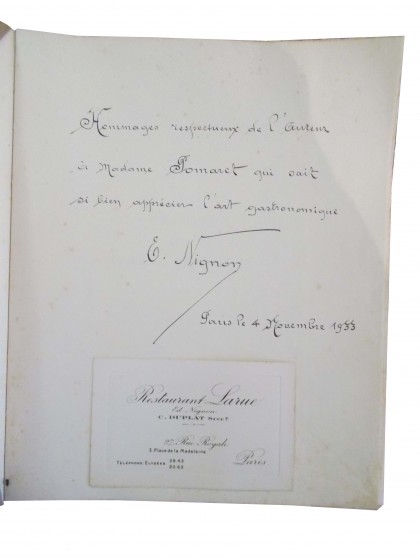 Hommages respectueux de l'Auteur
à Madame Pomaret qui sait
si bien apprécier l'art gastronomique
E. Nignon
Paris le 4 Novembre 1933
Restaurant Larue
Ed. Nignon
C. DUPLAT Succr
27, Rue Royale
3, Place de la Madeleine
TÉLÉPHONE: ÉLYSÉES
Paris